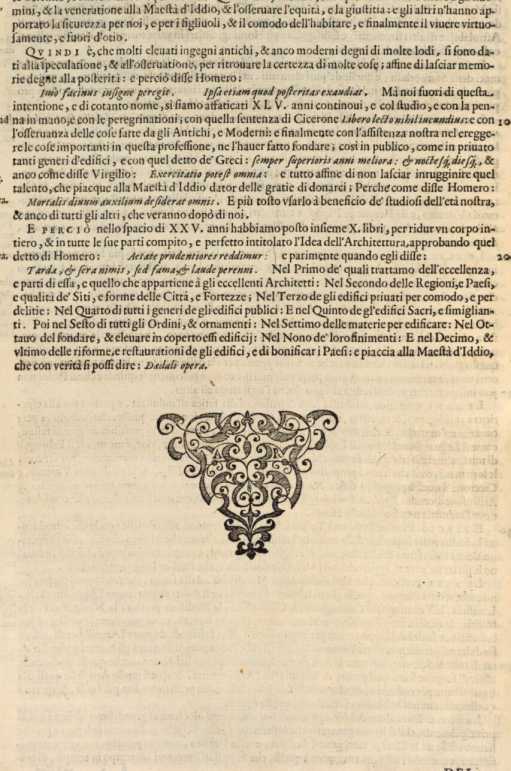 mini, & la veneratione alla Maestà d'Iddio, & l'osseruare l'equità, e la giustitia: e gli altri n'hanno ap-
portato la sicurezza per noi, e per i figliuoli, & il comodo dell'habitare, e finalmente il viuere virtuo-
samente, e fuori d'otio.
QVINDI è, che molti eleuati ingegni antichi, & anco moderni degni di molte lodi, si sono da-
ti alla speculatione, & all'osseruatione, per ritrouare la certezza di molte cose; affine di lasciar memo-
rie degne alla posterità: e perciò disse Homero:
Imò facinus insigne peregit. Ipsa etiam quod posteritas exaudiat. Mà noi fuori di questa
intentione, e di cotanto nome, si siamo affaticati XLV. anni continui, e col studio, e con la pen-
na in mano, e con le peregrinationi; con quella sentenza di Cicerone Libero lecto nihil incundius: e con 10
l'osseruanza delle cose fatte da gli Antichi, e Moderni: e finalmente con l'assistenza nostra nel eregge-
re le cose importanti in questa professione, ne l'hauer fatto fondare; così in publico, come in priuato
tanti generi d'edifici, e con quel detto de' Greci: semper superioris anni meliora: & noctesq́; diesq́;, &
anco come disse Virgilio: Exercitatio potest omnia: e tutto affine di non lasciar intrugginire quel
talento, che piacque alla Maestà d'Iddio dator delle gratie di donarci; Perche come disse Homero:
Mortalis diuum auxilium desiderat omnis. E più tosto vsarlo à beneficio de' studiosi dell'età nostra,
& anco di tutti gli altri, che veranno dopò di noi.
E PERCIÒ nello spacio di XXV. anni habbiamo posto insieme X. libri, per ridur vn corpo in-
tiero, & in tutte le sue parti compito, e perfetto intitolato l'Idea dell'Architettura, approbando quel
detto di Homero: Aetate prudentiores reddimur: e parimente quando egli disse: 20
Tarda, & sera nimis, sed fama, & laude perenni. Nel Primo de' quali trattamo dell'eccellenza,
e parti di essa, e quello che appartiene à gli eccellenti Architetti: Nel Secondo delle Regioni, e Paesi,
e qualità de' Siti, e forme delle Città, e Fortezze; Nel Terzo de gli edifici priuati per comodo, e per
delitie: Nel Quarto di tutti i generi de gli edifici publici: E nel Quinto de gl'edifici Sacri, e simiglian-
ti. Poi nel Sesto di tutti gli Ordini, & ornamenti: Nel Settimo delle materie per edificare: Nel Ot-
tauo del fondare, & eleuare in coperto essi edificij: Nel Nono de' loro finimenti: E nel Decimo, &
vltimo delle riforme, e restaurationi de gli edifici, e di bonificar i Paesi: e piaccia alla Maestà d'Iddio,
che con verità si possi dire: Dædali opera.